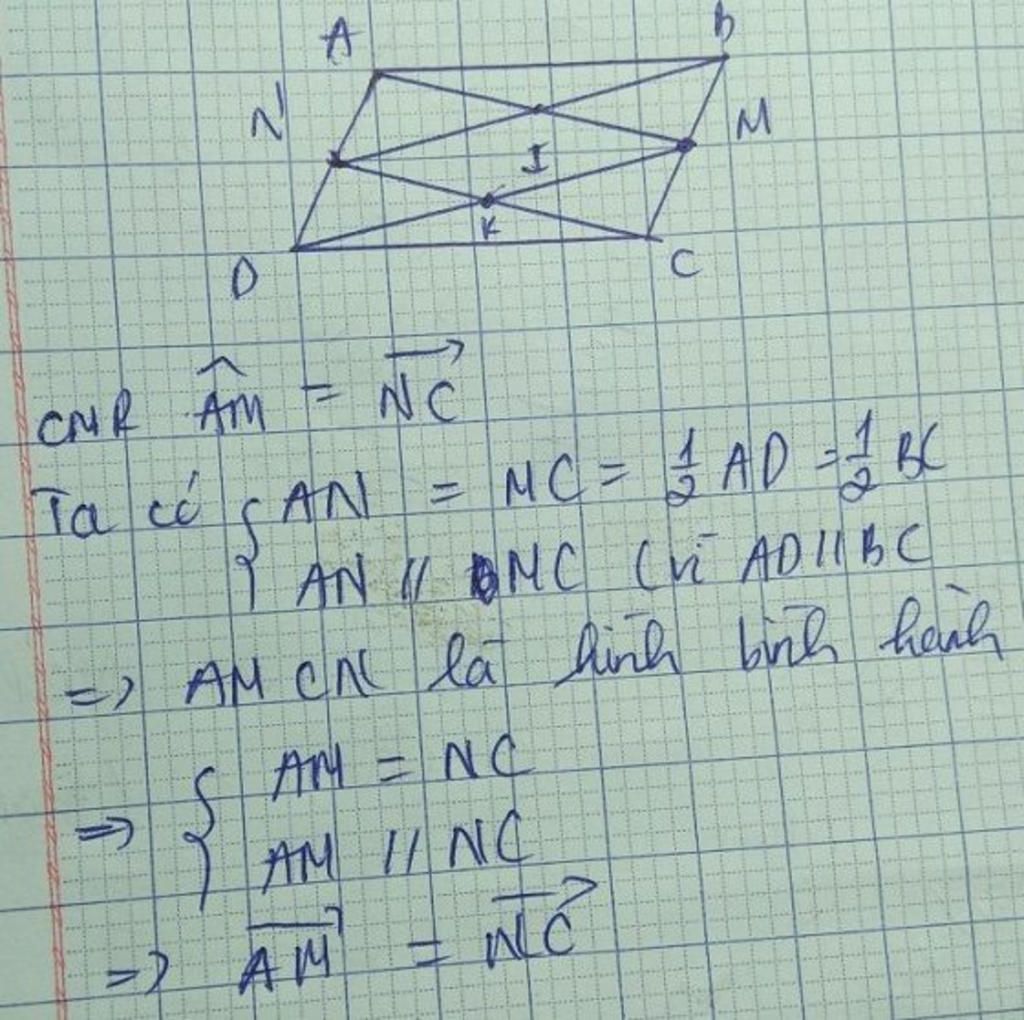 A
B
N
M
I
K
D
C
CMR \widehat{AM} = \overrightarrow{NC}
Ta có { AN = MC = 1/2 AD = 1/2 BC
AN // MC (vì AD // BC
=> AMCN là hình bình hành
=> { AM = NC
AM // NC
=> \overrightarrow{AM} = \overrightarrow{NC}